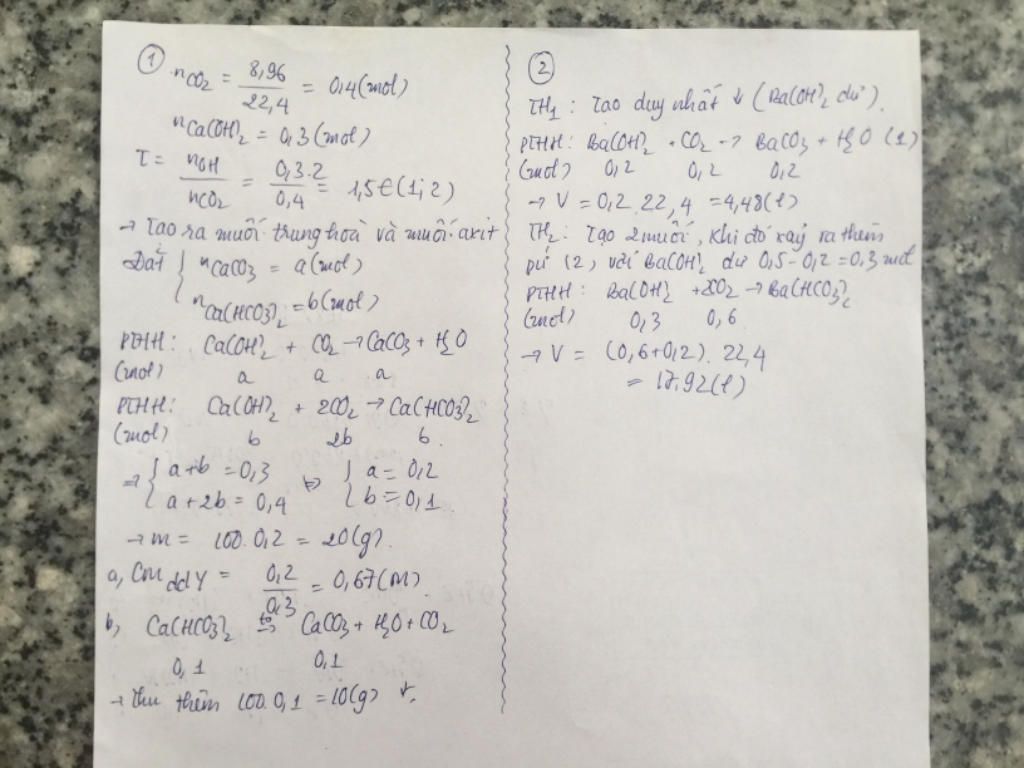 ①
nCO2 = 8,96 / 22,4 = 0,4 (mol)
nCa(OH)2 = 0,3 (mol)
T = nOH / nCO2 = 0,3.2 / 0,4 = 1,5 ∈ (1; 2)
→ Tạo ra muối trung hoà và muối axit
Đặt { nCaCO3 = a (mol)
nCa(HCO3)2 = b (mol)
PTHH: Ca(OH)2 + CO2 → CaCO3 + H2O
(mol) a a a
PTHH: Ca(OH)2 + 2CO2 → Ca(HCO3)2
(mol) b 2b b
⇒ { a + b = 0,3 ⇔ { a = 0,2
a + 2b = 0,4 b = 0,1
→ m = 100.0,2 = 20(g)
a, CM ddY = 0,2 / 0,3 = 0,67 (M)
b, Ca(HCO3)2 t° → CaCO3 + H2O + CO2
0,1 0,1
→ Thu thêm 100.0,1 = 10(g) ↓.
②
TH1: Tạo duy nhất ↓ (Ba(OH)2 dư).
PTHH: Ba(OH)2 + CO2 → BaCO3 + H2O (1)
(mol) 0,2 0,2 0,2
→ V = 0,2.22,4 = 4,48(l)
TH2: Tạo 2 muối, khi đó xảy ra thêm
pứ (2) với Ba(OH)2 dư 0,5 - 0,2 = 0,3 mol
PTHH: Ba(OH)2 + 2CO2 → Ba(HCO3)2
(mol) 0,3 0,6
→ V = (0,6+0,2).22,4
= 17,92(l)